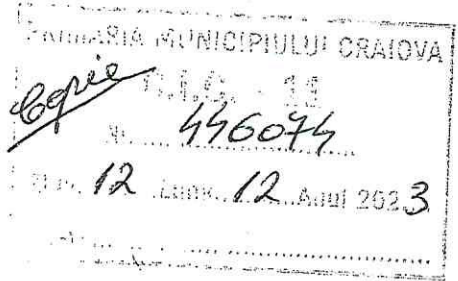 PRIMĂRIA MUNICIPIULUI CRAIOVA
Copie
C.I.C. - 11
Nr. 446074
12 Luna 12 Anul 2023